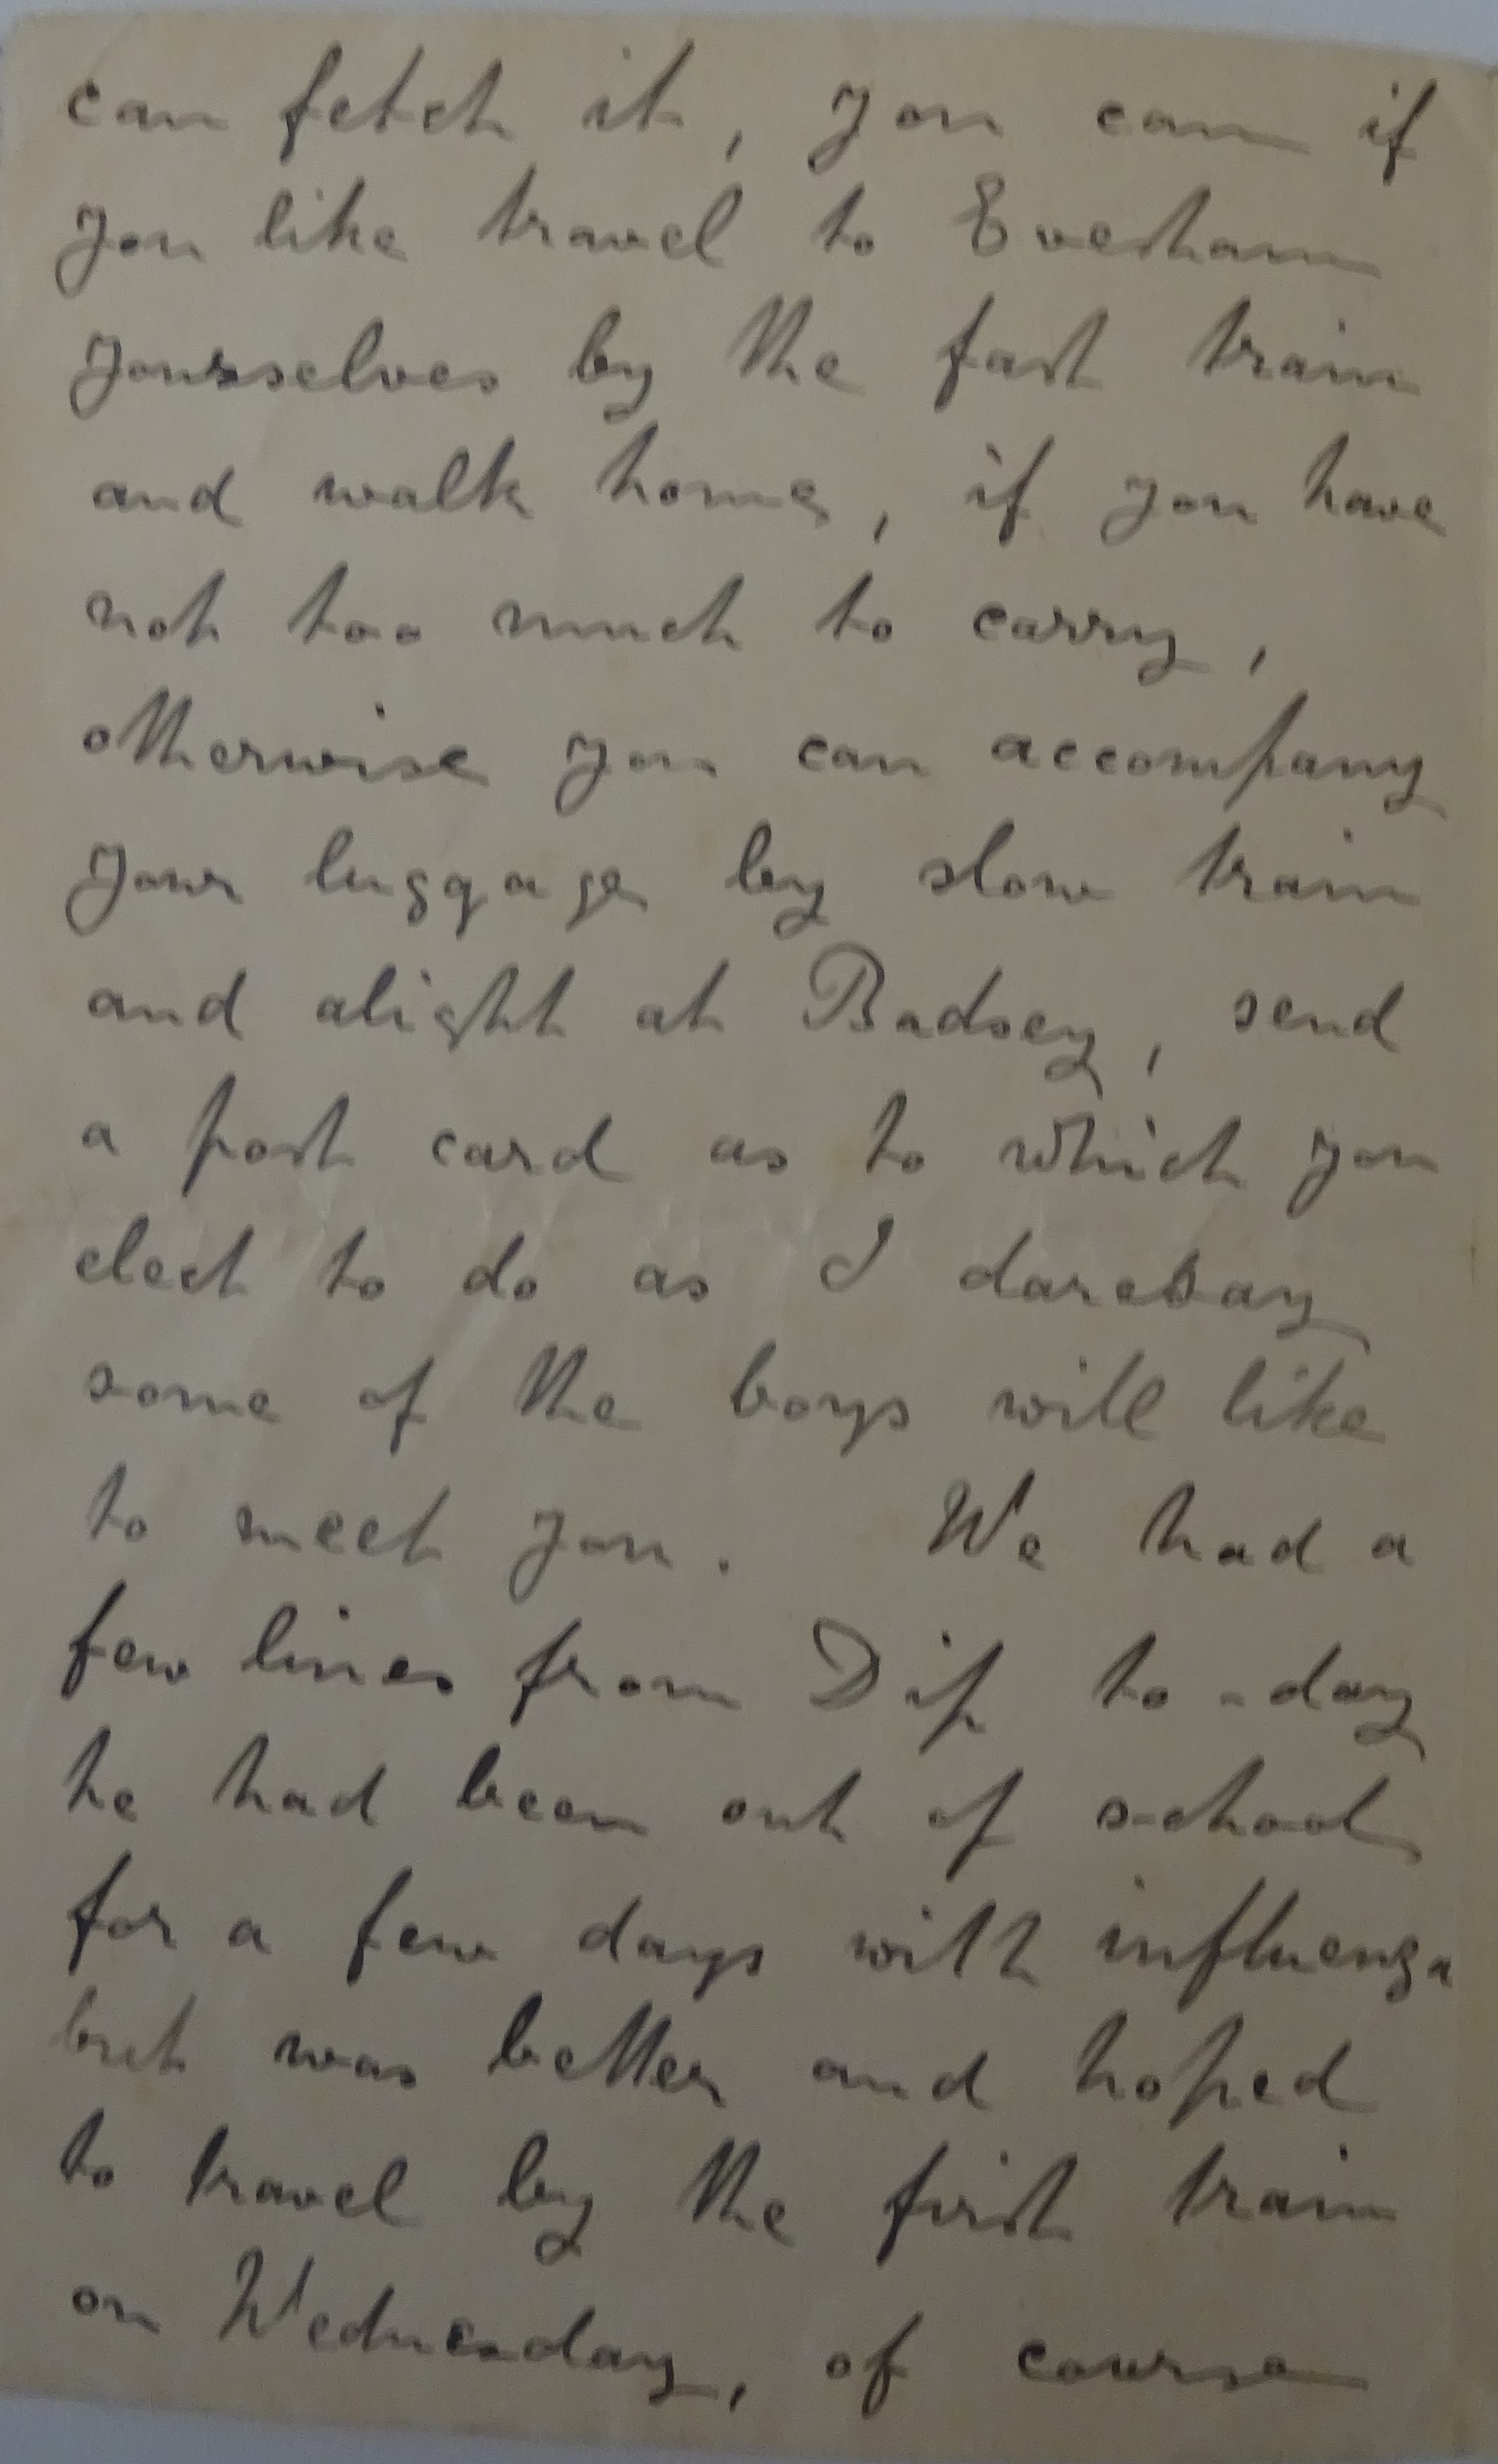 can fetch it, you can if
you like travel to Evesham
yourselves by the fast train
and walk home, if you have
not too much to carry,
otherwise you can accompany
your luggage by slow train
and alight at Badsey, send
a post card as to which you
elect to do as I daresay
some of the boys will like
to meet you. We had a
few lines from Dip to-day
he had been out of school
for a few days with influenza
but was better and hoped
to travel by the first train
on Wednesday, of course